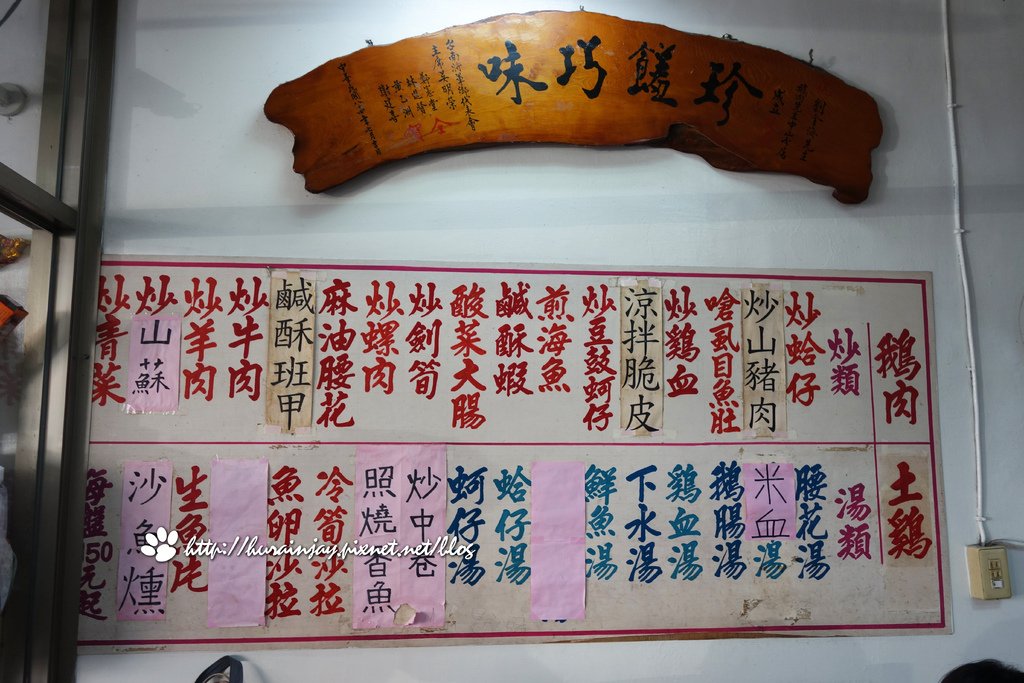 珍饈巧味
鵝肉
土鷄
炒類
炒蛤仔
炒山豬肉
嗆虱目魚肚
炒鷄血
涼拌脆皮
炒豆鼓蚵仔
煎海魚
鹹酥蝦
酸菜大腸
炒劍筍
炒螺肉
麻油腰花
鹹酥班甲
炒牛肉
炒羊肉
炒山蘇
炒青菜
湯類
腰花湯
米血湯
鵝腸湯
鷄血湯
下水湯
鮮魚湯
蛤仔湯
蚵仔湯
炒中卷
照燒香魚
冷筍沙拉
魚卵沙拉
生魚片
沙魚燻
每盤50元起
http://hurainjay.pixnet.net/blog